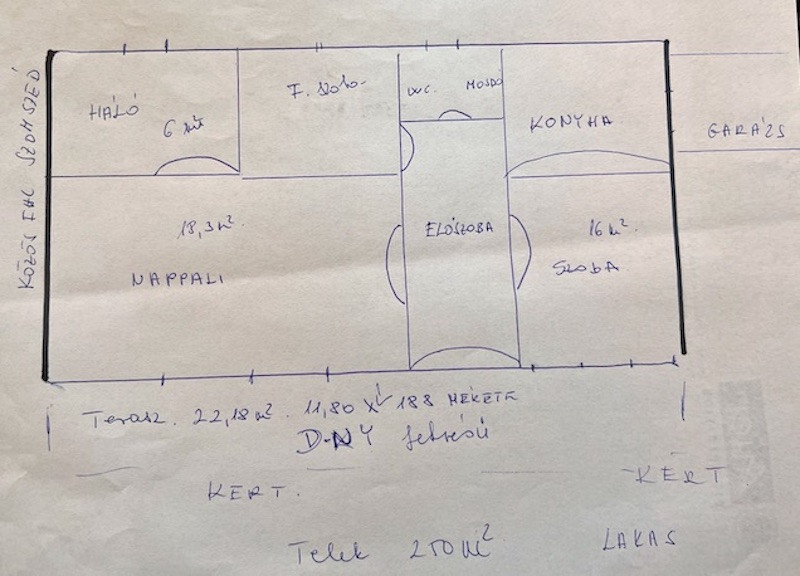 KÖZÖS FAL SZOMSZÉD
HÁLÓ
6 m²
F. szoba
WC.
MOSDÓ
KONYHA
GARÁZS
18,3 m².
NAPPALI
ELŐSZOBA
16 m².
SZOBA
Terasz. 22,18 m². 11,80 X 188 MÉRETE
D-NY
KERT.
KERT
Telek 250 m²
LAKAS